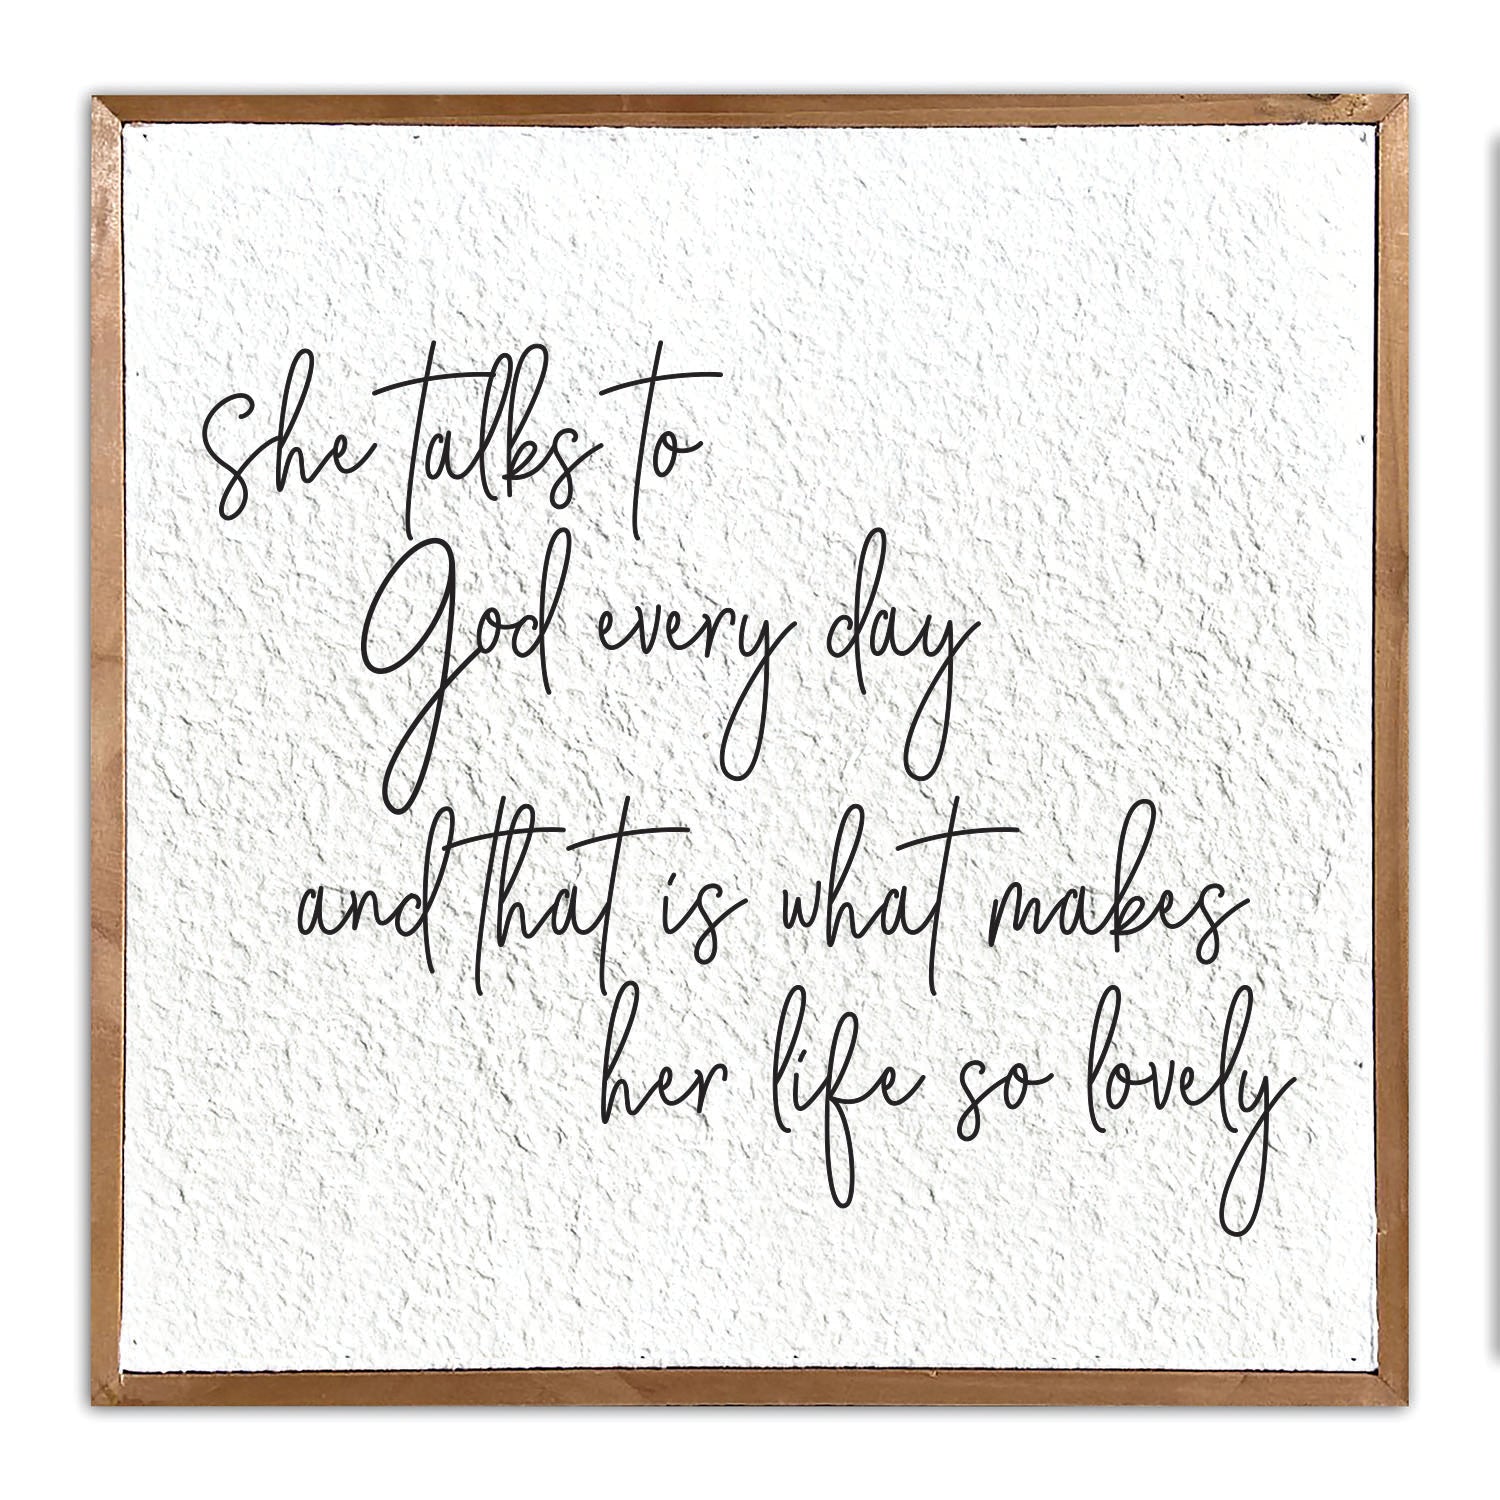 she talks to
God every day
and that is what makes
her life so lovely